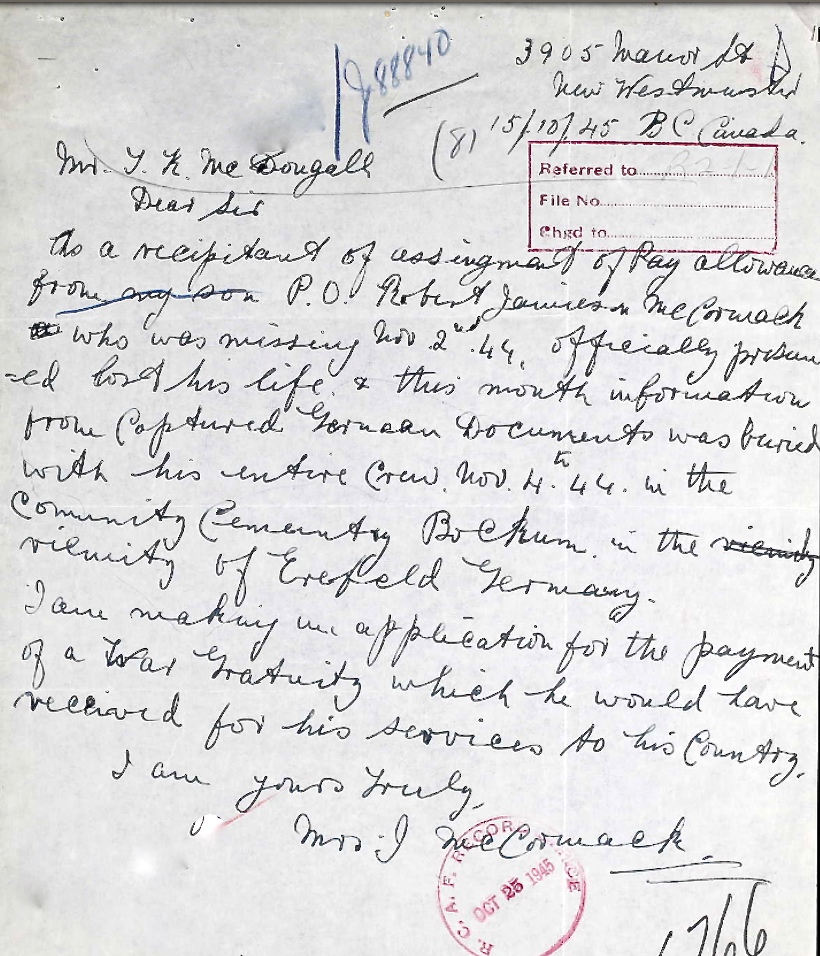 J88840
3905 Manor St
New Westminster
(8) 15/10/45 BC Canada.
Mr. T. K. McDougall
Dear Sir
Referred to
File No.
Chgd to
As a recipitant of assingment of Pay allowance
from my son P.O. Robert Jamieson McCormack
who was missing Nov. 2nd. 44, officially presum
-ed lost his life. & this month information
from Captured German Documents was buried
with his entire Crew. Nov. 4th. 44. in the
Comunity Cementry Bockum. in the vicinity
vicinity of Erefeld Germany.
I am making an application for the payment
of a War Gratuity which he would have
received for his services to his Country.
I am yours truly,
Mrs. J McCormack
R.C.A.F. RECORD OFFICE
OCT 25 1945
1766